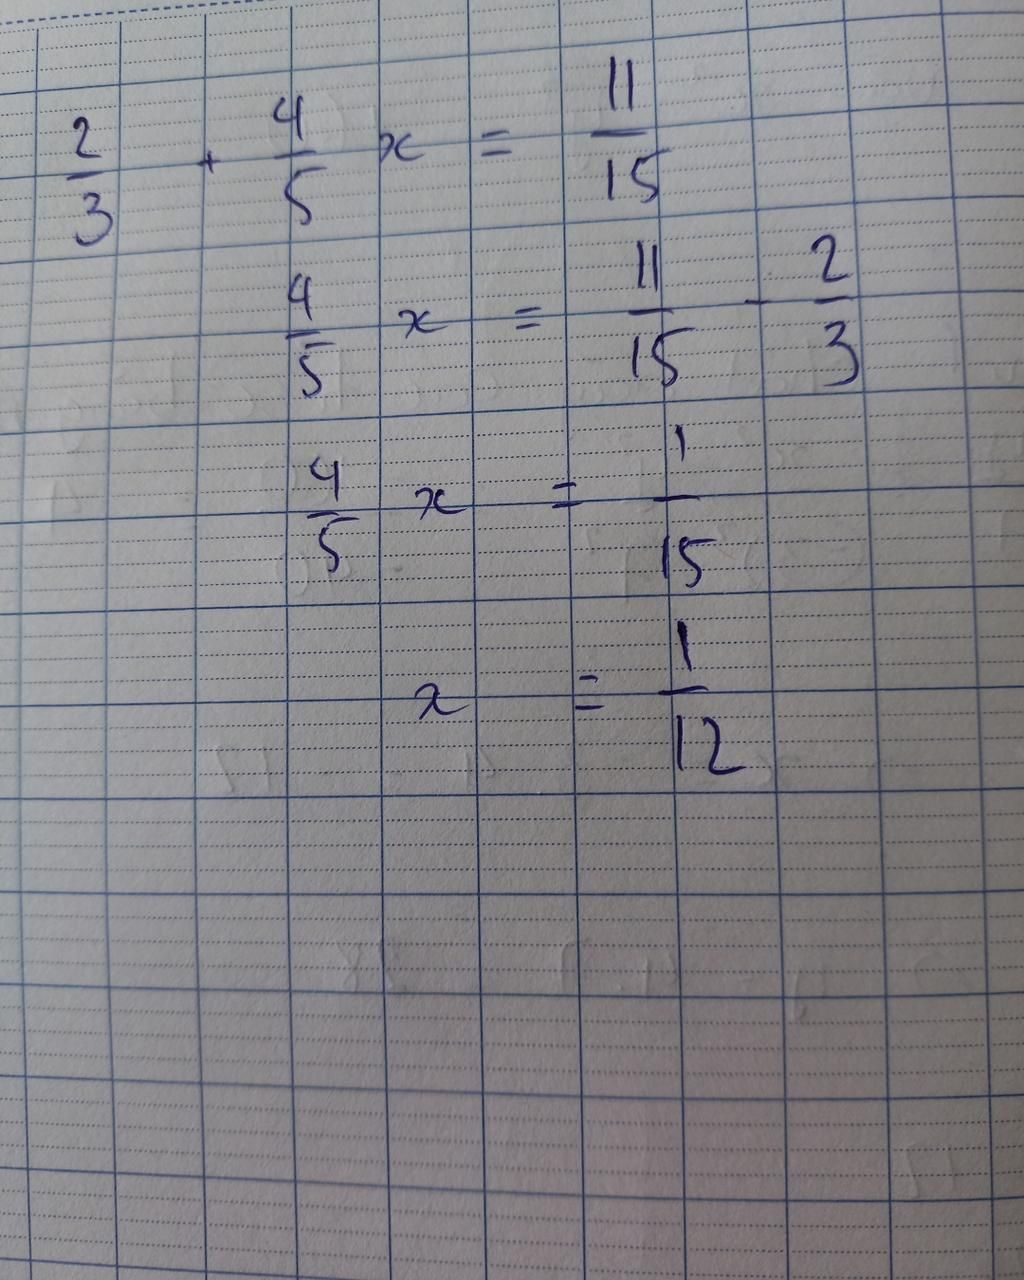 2/3 + 4/5 x = 11/15
4/5 x = 11/15 - 2/3
4/5 x = 1/15
x = 1/12